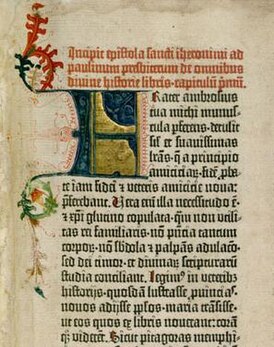 Incipit epistola sancti iheronimi ad
paulinum presbiterum de omnibus
divine historie libris. capitulū pmū.
FRater ambrosius
tua michi munus-
cula pferens. detulit
sil' et suavissimas
lrās. q̄ a principio
amiciciaꝝ. fidē pba-
te iam fidei ⁊ veteris amicicie nova:
pferebant. Vera em̄ illa necessitudo ē.
⁊ xp̄i glutino copulata. qm̄ non vtili-
tas rei familiaris. nō pn̄cia tantum
corpoꝝ. nō sbdola ⁊ palpās adulacō.
sed dei timor. et divinaꝝ scripturarū
studia conciliant. Legimꝰ in veteribꝫ
historijs. quosdā lustrasse puincias.
novos adijsse pplos. maria trāsisse.
ut eos quos ex libris noverant: corā
qꝫ viderēt. Sicut pitagoras memphi-